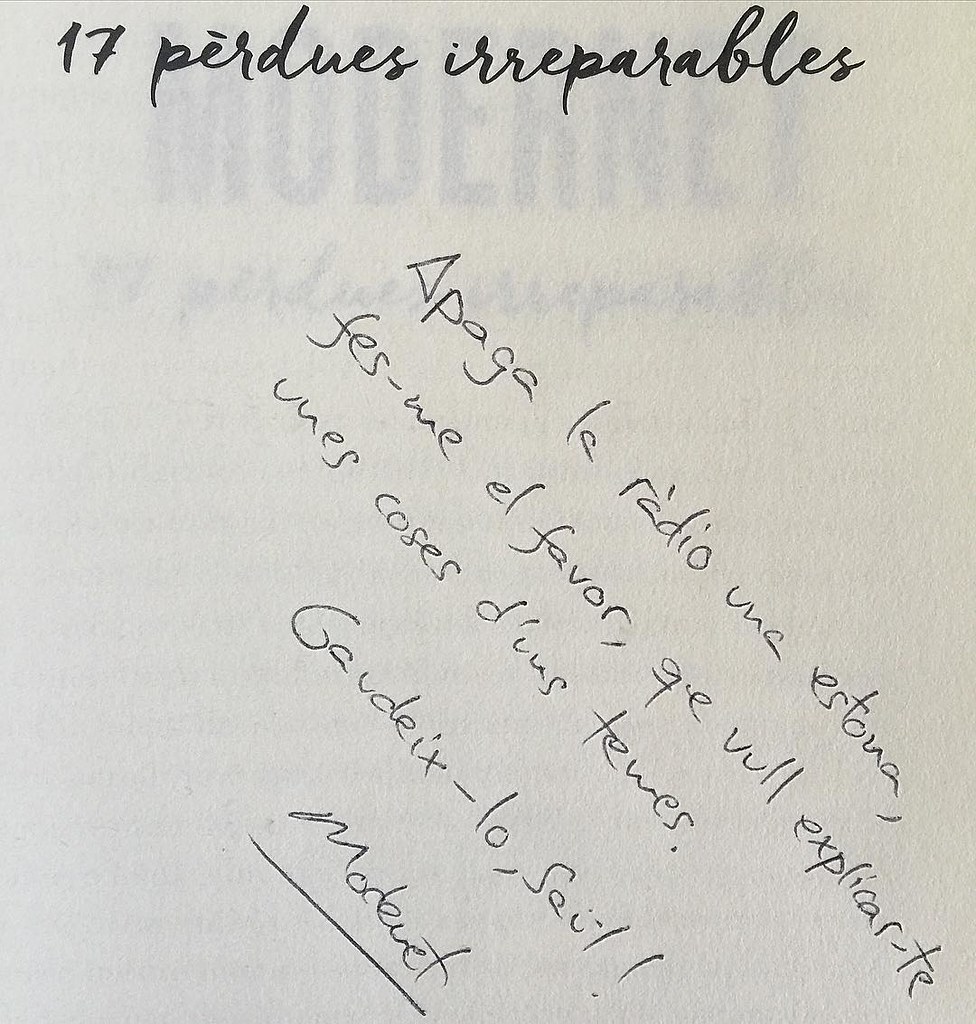 17 pèrdues irreparables
Apaga la ràdio una estona,
fes-me el favor, que vull explicar-te
unes coses d'uns temes.
Gaudeix-lo, Saül!
Modernet